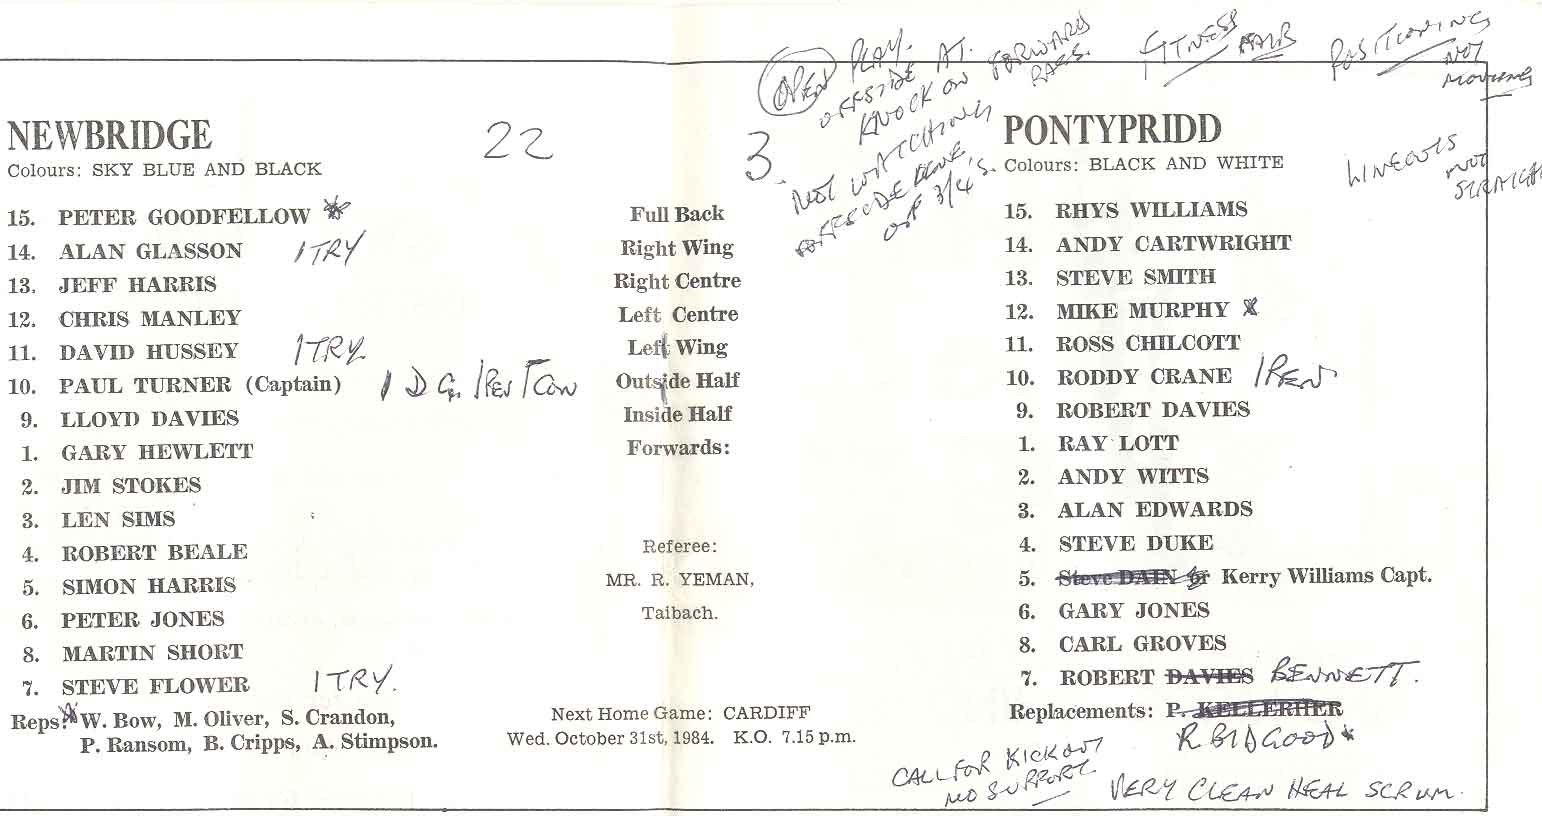 OPEN PLAY.
OFFSIDE AT.
KNOCK ON FORWARD
PASS.
NOT WATCHING
OFFSIDE
OF 3/4'S.
FITNESS
POSITIONING
NOT
MOVING
LINEOUTS
NOT
STRAIGHT
NEWBRIDGE 22
Colours: SKY BLUE AND BLACK
3.
PONTYPRIDD
Colours: BLACK AND WHITE
15. PETER GOODFELLOW * Full Back 15. RHYS WILLIAMS
14. ALAN GLASSON 1 TRY Right Wing 14. ANDY CARTWRIGHT
13. JEFF HARRIS Right Centre 13. STEVE SMITH
12. CHRIS MANLEY Left Centre 12. MIKE MURPHY *
11. DAVID HUSSEY 1 TRY Left Wing 11. ROSS CHILCOTT
10. PAUL TURNER (Captain) 1 D G. 1 PEN 1 CON Outside Half 10. RODDY CRANE 1 PEN
9. LLOYD DAVIES Inside Half 9. ROBERT DAVIES
1. GARY HEWLETT Forwards: 1. RAY LOTT
2. JIM STOKES 2. ANDY WITTS
3. LEN SIMS 3. ALAN EDWARDS
4. ROBERT BEALE Referee: 4. STEVE DUKE
5. SIMON HARRIS MR. R. YEMAN, 5. Steve DAIN or Kerry Williams Capt.
6. PETER JONES Taibach. 6. GARY JONES
8. MARTIN SHORT 8. CARL GROVES
7. STEVE FLOWER 1 TRY. 7. ROBERT DAVIES BENNETT.
Reps: * W. Bow, M. Oliver, S. Crandon, Next Home Game: CARDIFF Replacements: P. KELLERHER
P. Ransom, B. Cripps, A. Stimpson. Wed. October 31st, 1984. K.O. 7.15 p.m. R BIDGOOD *
CALL FOR KICK OUT
NO SUPPORT
VERY CLEAN HEAL SCRUM.